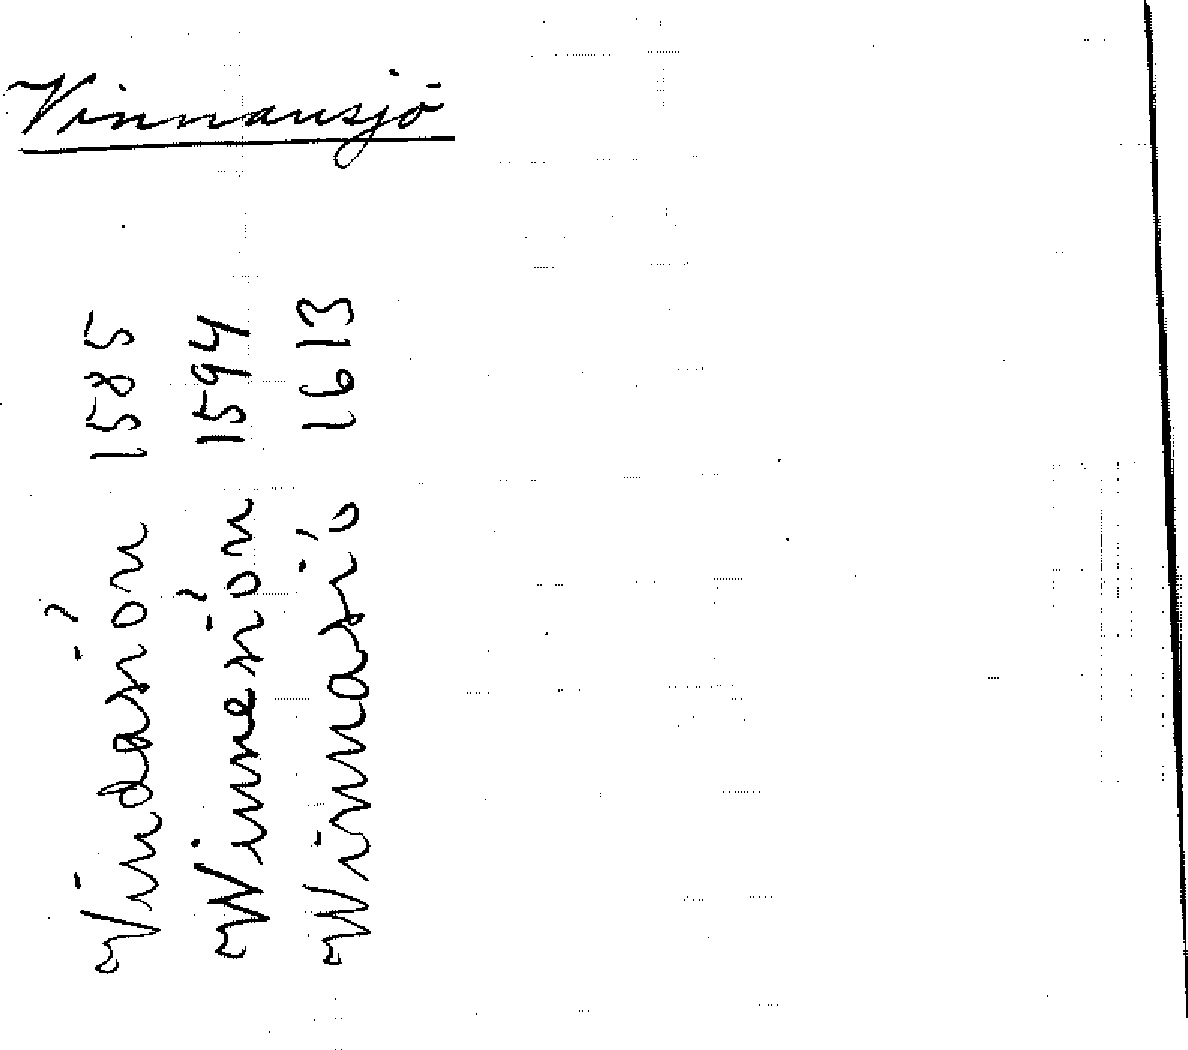 Vinnansjö
Vindasiön 1585
Winnesiön 1594
Winnasiö 1613